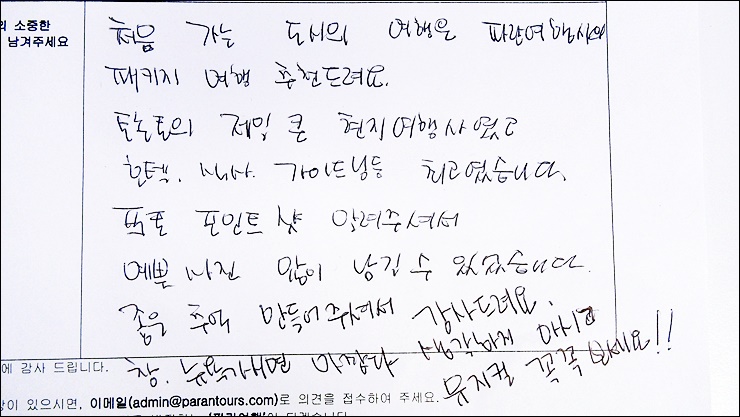 의 소중한
남겨주세요
처음 가는 도시의 여행은 파란여행사의
패키지 여행 추천드려요.
토론토의 제일 큰 현지여행사였고
호텔. 식사. 가이드님등 최고였습니다.
폭포 포인트 샷 알려주셔서
예쁜 사진 많이 남길 수 있었습니다.
좋은 추억 만들어주셔서 감사드려요.
참. 뉴욕가시면 아깝다 생각하지 마시고
뮤지컬 꼭꼭 보세요!!
에 감사 드립니다.
이 있으시면, 이메일(admin@parantours.com)로 의견을 접수하여 주세요.